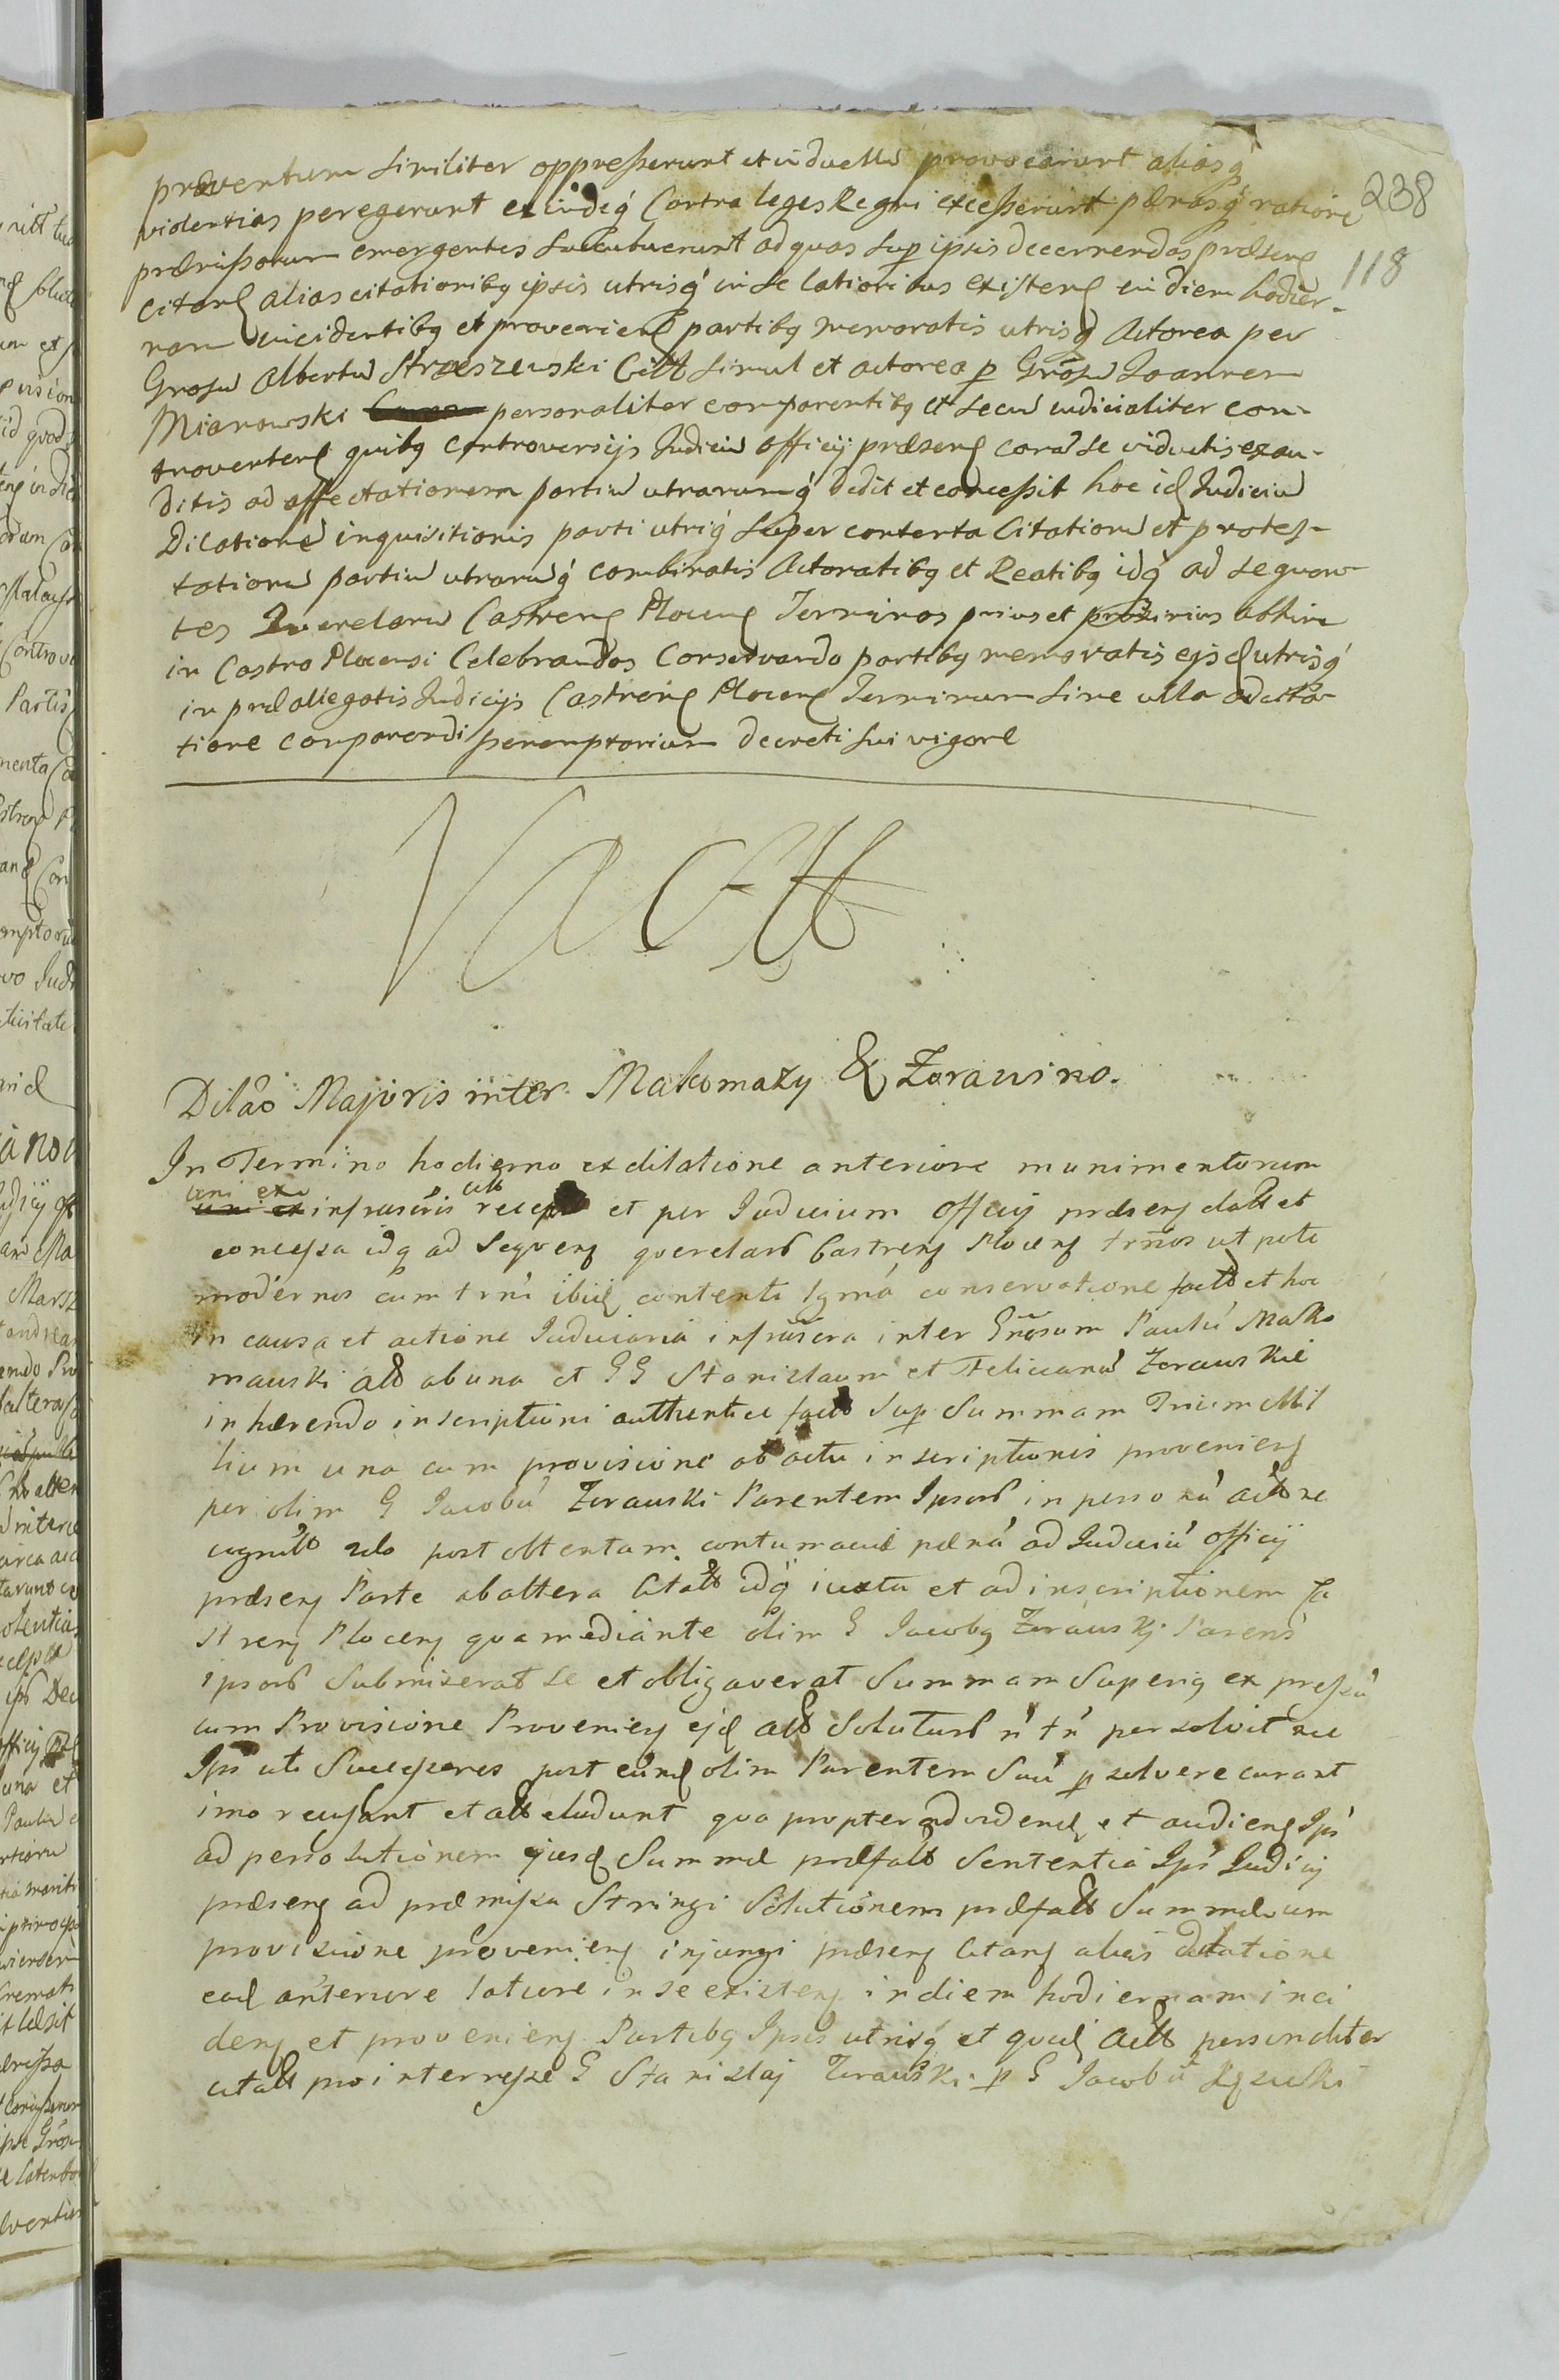 238
118
proventum similiter oppresserunt et in duellu provocarunt aliasq
violentias peregerunt exindeq Contra leges Regni excesserunt pænasq ratione
præmissorum emergentes succubuerunt ad quas sup ipsis decernendas præsens
citans alias citationibq ipsis utrisq in se latioribus existens in diem hodier-
nam incidentibq et provenien partibq memoratis utrisq Actorea per
Grosu Albertu Strzeszewski Citt simul et actorea p Grosu Joannem
Mianowski personaliter comparentibq et secu iudicialiter con-
troverten quibq controversijs Judiciu officij præsens cora se viductis exau-
ditis ad affectationem partiu utrarumq dedit et concessit hoc id Judiciu
Dilatione inquisitionis parti utriq super contenta Citationu et protes-
tationu partiu utraruq combinatis Actoratibq et Reatibq idq ad sequen-
tes Querelaru Castren Plocen Terminos prius et proximius abhinc
in Castro Plocensi Celebrandos Conservando partibq memoratis ejsd utrisq
in præallegatis Judicijs Castren Plocen Terminum sine ulla adcita-
tione comparendi peremptorium decreti sui vigore
Vacatt
Dilao Majoris inter Makomazy & Zorawino.
In Termino hodierno ex dilatione anteriore munimentorum
uni ex infrascris recep et per Judicium officij præsens datt et
concessa idq ad sequen querelaru Castren Plocen trnos ut pote
modernos cum trni ibid contenti conservatione factt et hoc
in causa et actione Judiciaria infrascra inter Gnosum Paulu Mako
mauski att ab una et GG Stanislaum et Felicianu Zorauskie
inhærendo inscriptioni authentice factt sup Summam Trium Mil
lium una cum provisione ab actu inscriptionis provenien
per olim G Jacobu Zorauski Parentem Ipsoru in persona actt ne
cognitt post obtentam contumaciæ pæna ad Judiciu officij
præsens Parte ab altera Citatt idq iuxta et ad inscriptionem Ca
stren Plocen qua mediante olim G Jacobq Zorauskj Parens
ipsoru submiserat se et obligaverat Summam Superiq expressa
cum Provisione Provenien ejd att soluturu n tn persolvit nec
Ipsi uti Successores post eund olim Parentem Suu p solvere curant
imo recusant et att eludunt qua propter ad vidend et audiend Ipsi
ad persolutionem ejusd Summæ præfatt Sententia Ipsi Judicij
præsens ad præmissa Stringi Solutionem præfatt Summæ cum
provisione provenien injungi præsens Citans alias dilatione
ead anteriore latiore in se existens in diem hodiernam inci
dens et provenien Partibq Ipsis utrisq et quid actt personaliter
citatt pro interresse G Stanislaj Zorauski p G Jacobu